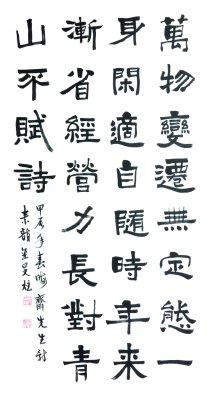 萬物變遷無定態一
身閑適自隨時年来
漸省經營力長對青
山不賦詩
甲辰年春晦齋先生詩